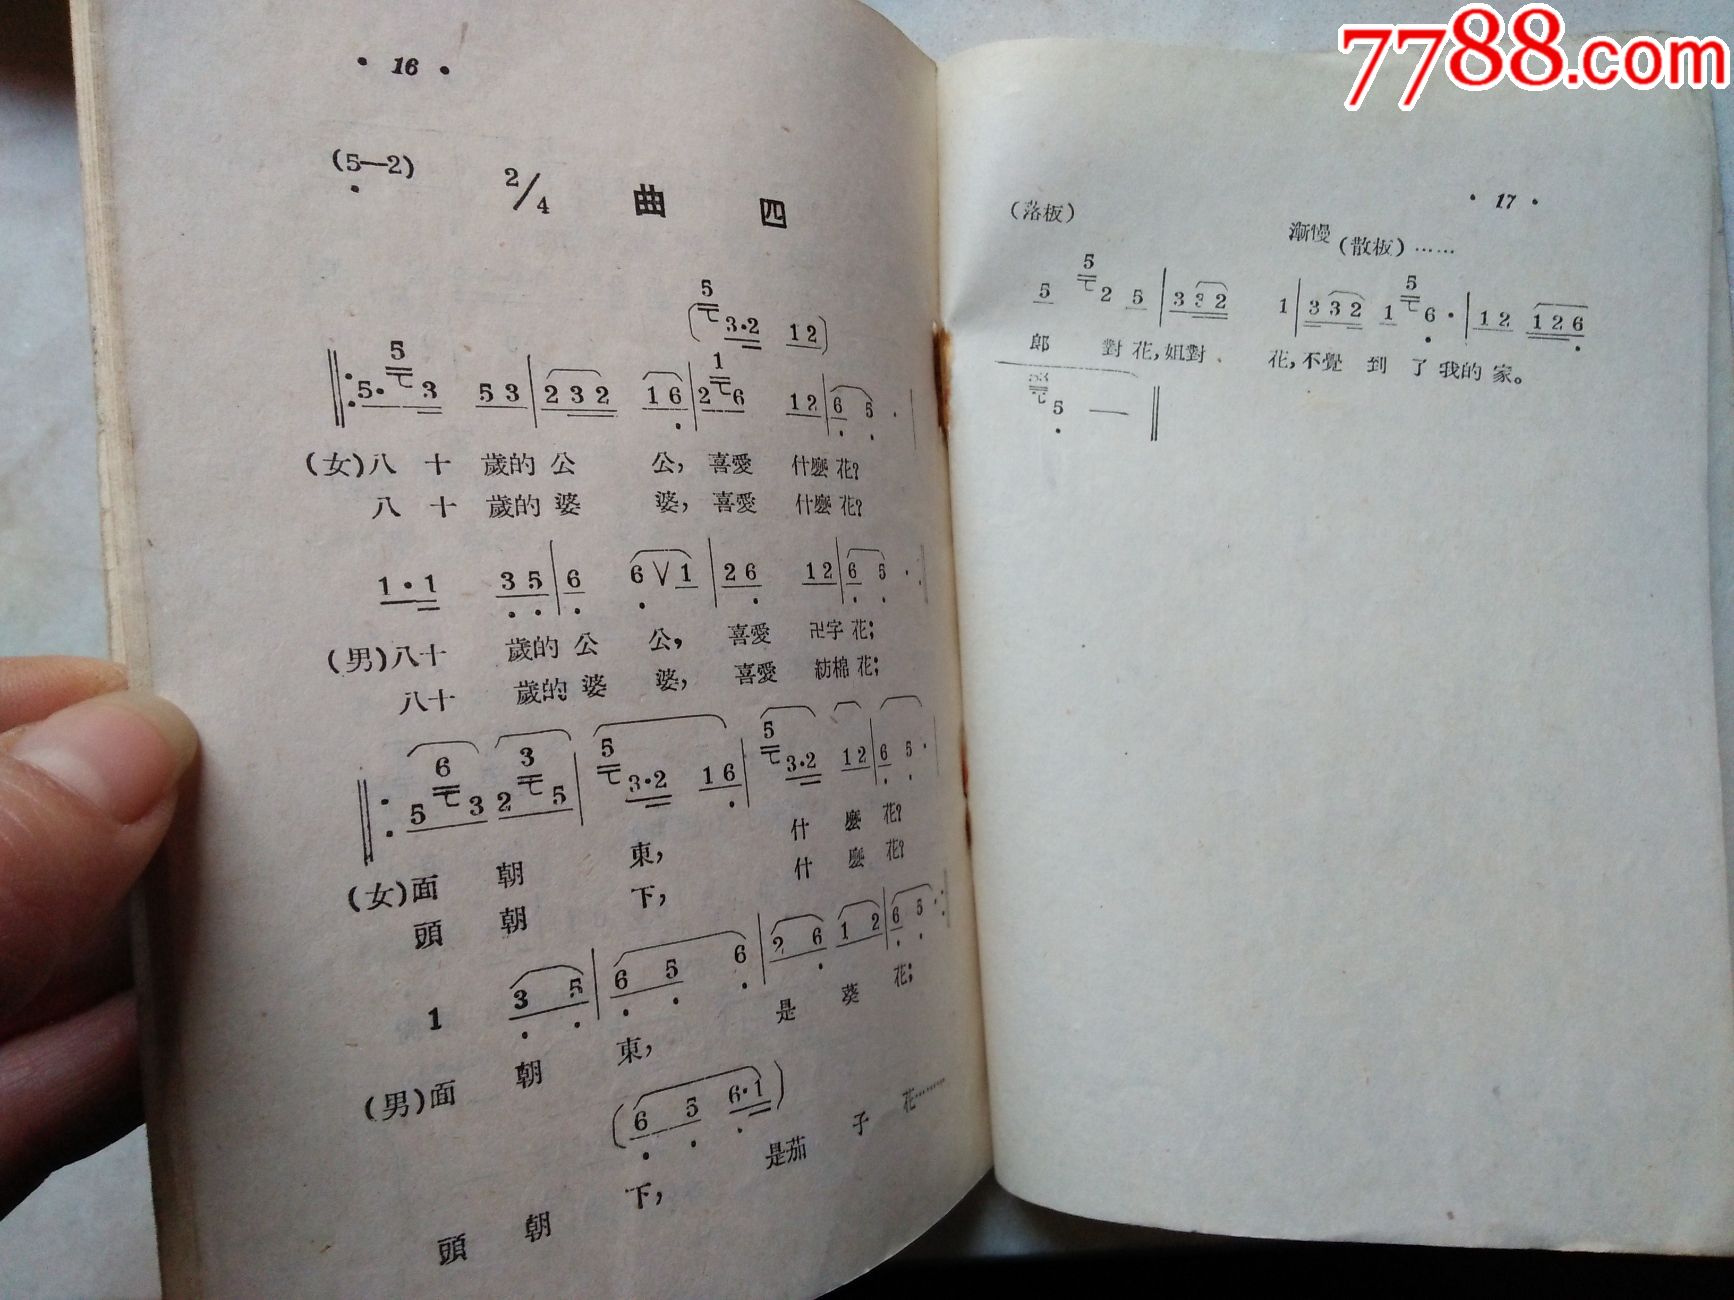 7788.com
• 16 •
(5—2) 2/4 曲 四
5 3·2 1 2
5 1
5· 3 5 3 2 3 2 1 6 2 6 1 2 6 5 ·
(女)八 十 歲的 公 公, 喜愛 什麼 花?
八 十 歲的 婆 婆, 喜愛 什麼 花?
1 · 1 3 5 6 6 V 1 2 6 1 2 6 5 ·
(男)八十 歲的 公 公, 喜愛 卍字 花;
八十 歲的 婆 婆, 喜愛 紡棉 花;
6 3 5 5
5 3 2 5 3·2 1 6 3·2 1 2 6 5 ·
(女)面 朝 東, 什 麼 花?
頭 朝 下, 什 麼 花?
1 3 5 6 5 6 2 6 1 2 6 5 ·
(男)面 朝 東, 是 葵 花;
(6 5 6·1)
頭 朝 下, 是茄 子 花……
• 17 •
(落板) 漸慢 (散板)……
5 5
5 2 5 3 3 2 1 3 3 2 1 6 · 1 2 1 2 6
郎 對 花, 姐對 花, 不覺 到 了 我的 家。
53
5 —